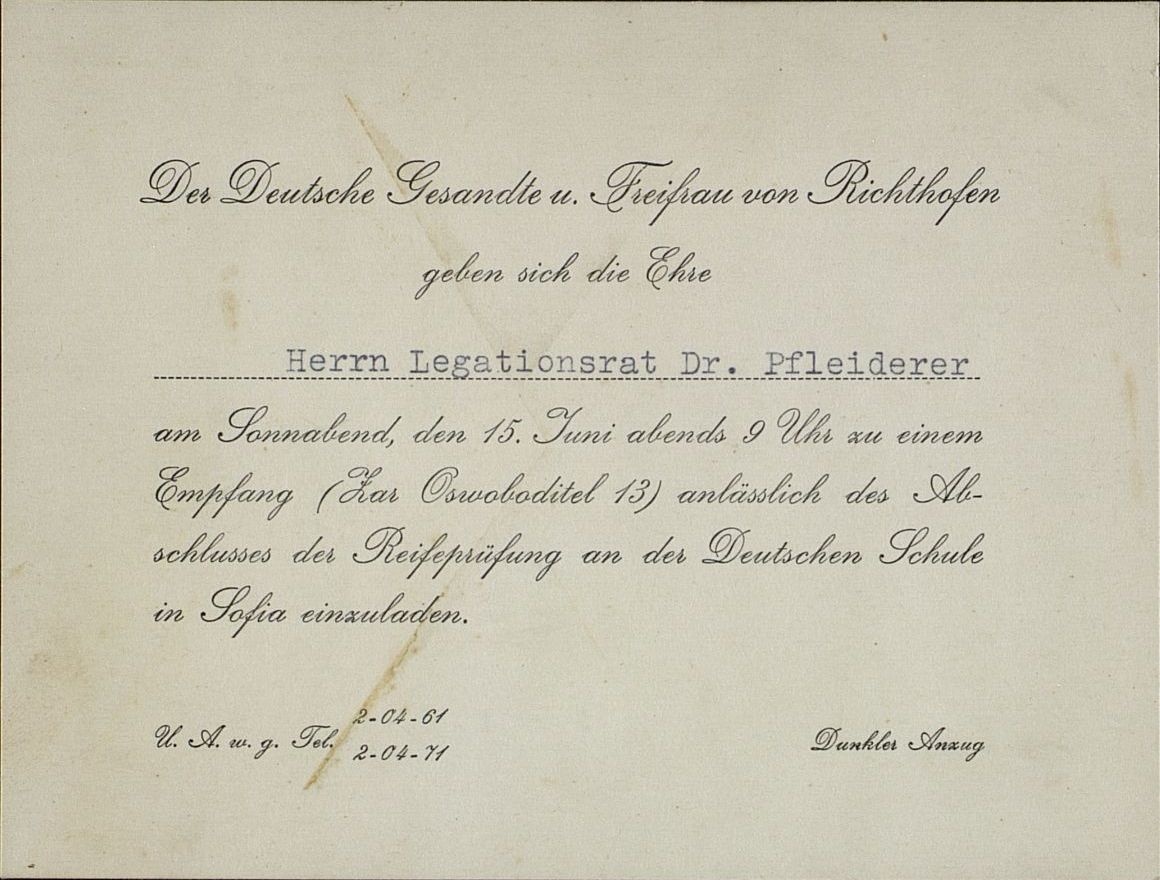 Der Deutsche Gesandte u. Freifrau von Richthofen
geben sich die Ehre
Herrn Legationsrat Dr. Pfleiderer
am Sonnabend, den 15. Juni abends 9 Uhr zu einem
Empfang (Zar Oswoboditel 13) anlässlich des Ab-
schlusses der Reifeprüfung an der Deutschen Schule
in Sofia einzuladen.
U. A. w. g. Tel. 2-04-61
2-04-71
Dunkler Anzug